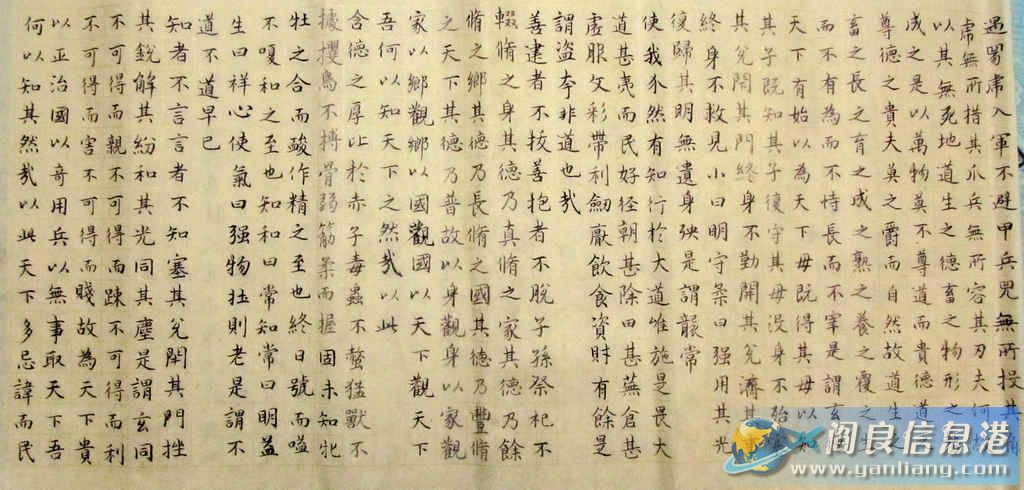 遇兕虎入軍不避甲兵兕無所投其角
虎無所措其爪兵無所容其刃夫何故
以其無死地道生之德畜之物形之
成之是以萬物莫不尊道而貴德道
尊德之貴夫莫之爵而自然故道生之
畜之長之育之成之熟之養之覆之生
而不有為而不恃長而不宰是謂玄
天下有始以為天下母既得其母以知
其子既知其子復守其母没身不殆
其兌閉其門終身不勤開其兌濟其
終身不救見小曰明守柔曰强用其光
復歸其明無遺身殃是謂襲常
使我介然有知行於大道唯施是畏大
道甚夷而民好徑朝甚除田甚蕪倉甚
虛服文彩帶利劒厭飲食資財有餘是
謂盜夸非道也哉
善建者不拔善抱者不脫子孫祭祀不
輟脩之身其德乃真脩之家其德乃餘
脩之鄉其德乃長脩之國其德乃豐脩
之天下其德乃普故以身觀身以家觀
家以鄉觀鄉以國觀國以天下觀天下
吾何以知天下之然哉以此
含德之厚比於赤子毒蟲不螫猛獸不
據攫鳥不搏骨弱筋柔而握固未知牝
牡之合而酸作精之至也終日號而嗌
不嗄和之至也知和曰常知常曰明益
生曰祥心使氣曰强物壯則老是謂不
道不道早已
知者不言言者不知塞其兌閉其門挫
其銳解其紛和其光同其塵是謂玄同
不可得而親不可得而踈不可得而利
不可得而害不可得而賤故為天下貴
以正治國以奇用兵以無事取天下吾
何以知其然哉以此天下多忌諱而民
阎良信息港
www.yanliang.com